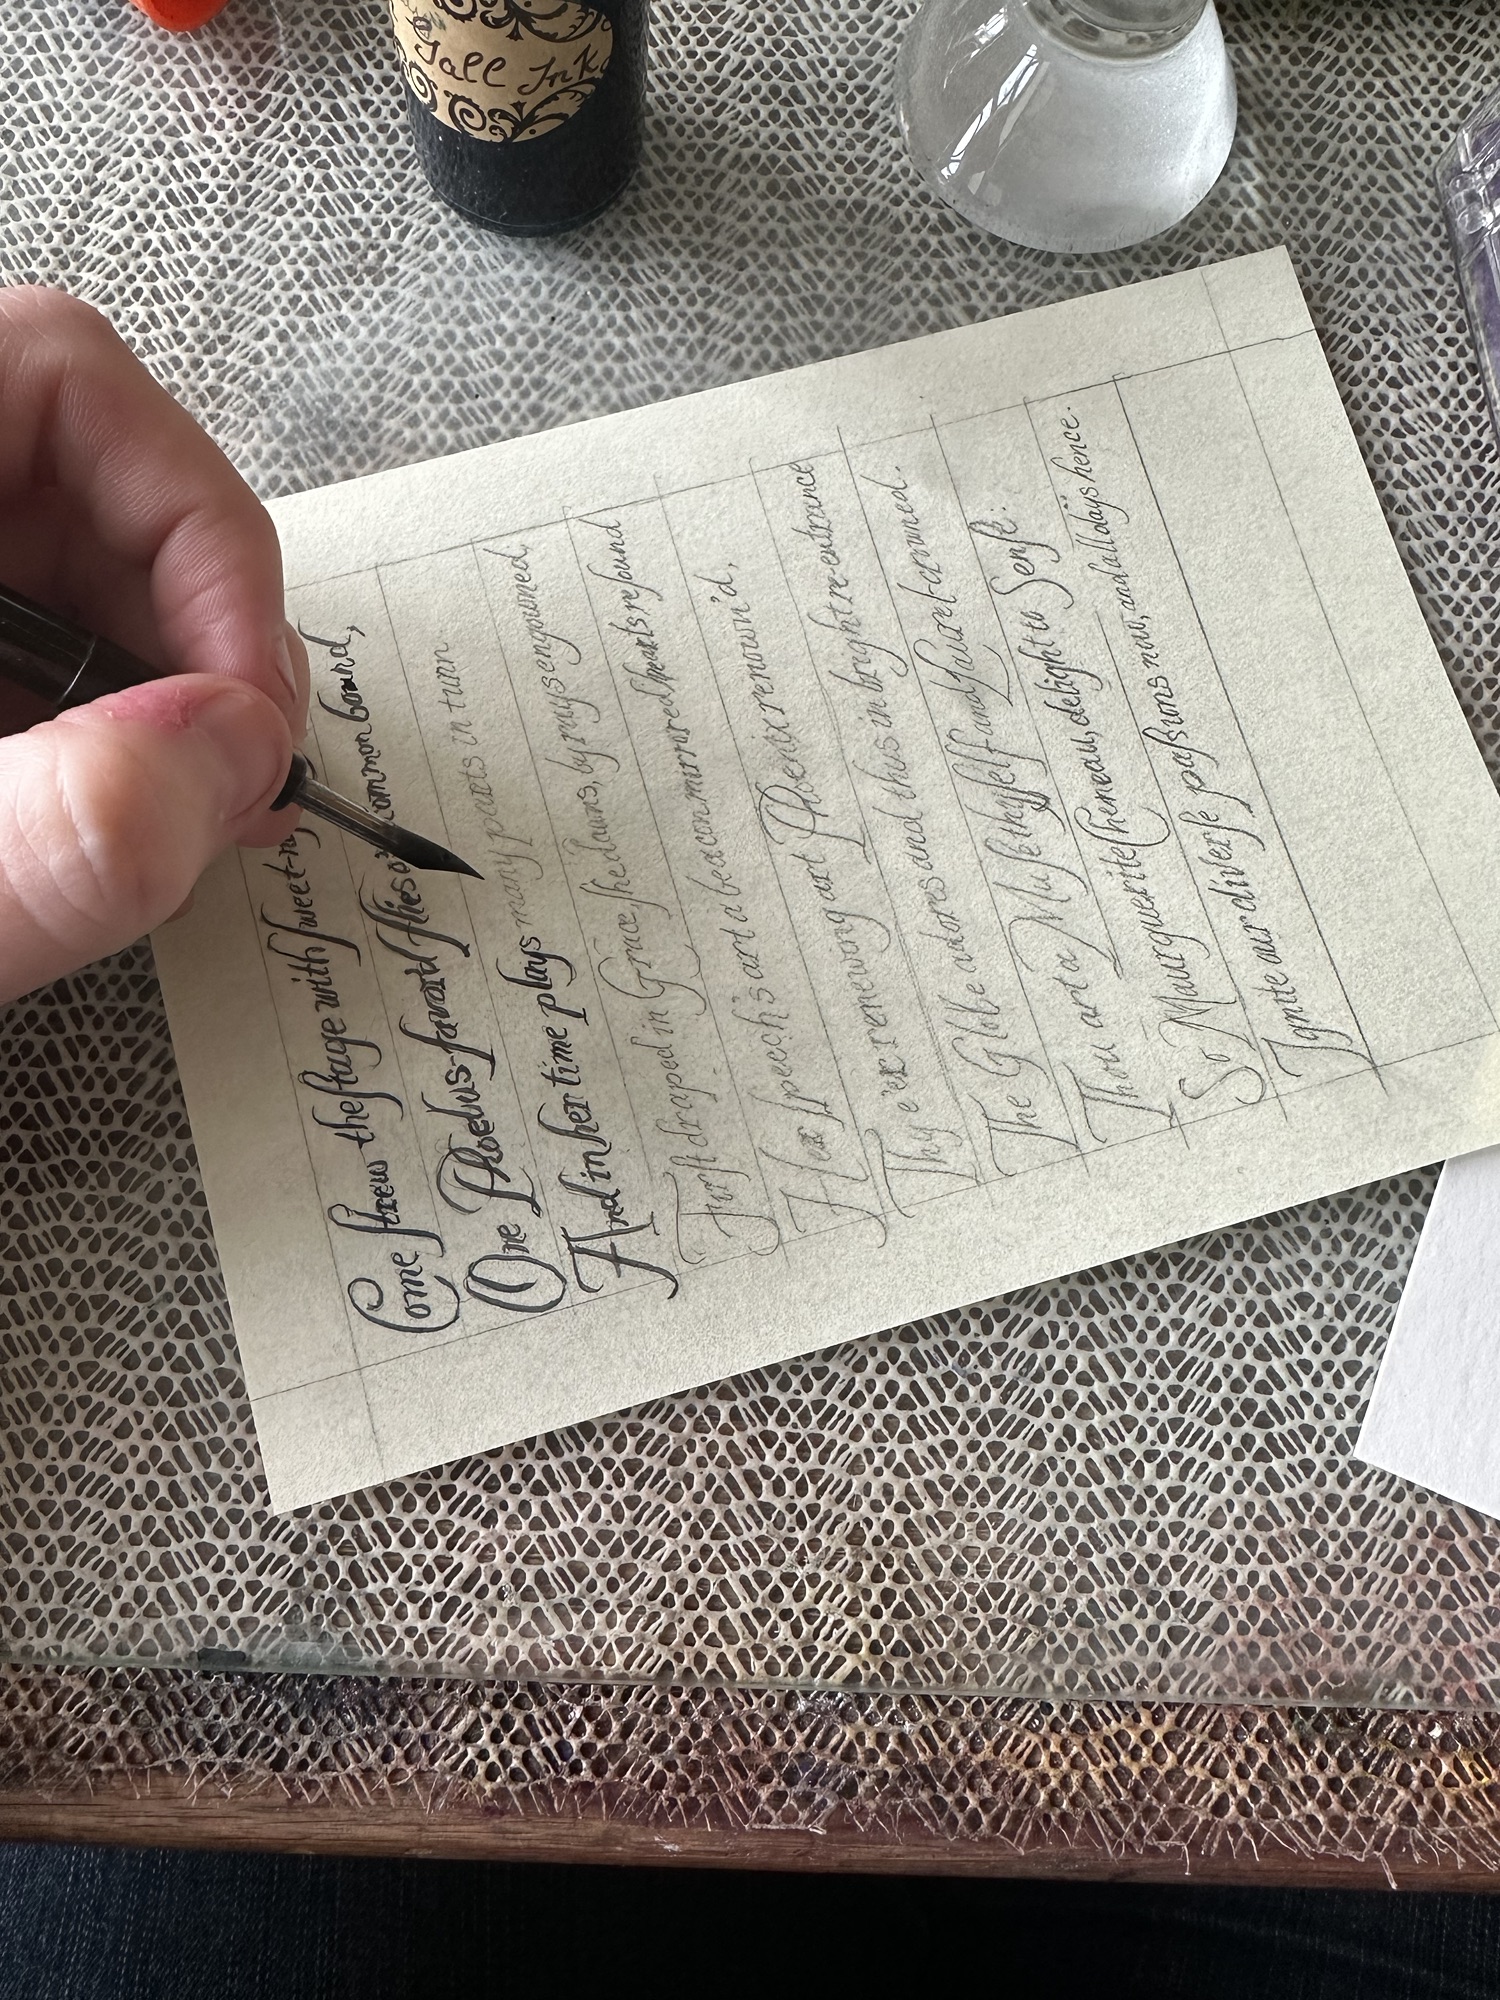 Gall Ink
Come ſtrew the ſtage with ſweet-
One Phoebus-favor'd common bound,
And in her time plays many parts in turn
Firſt draped in Grace, ſhe dawns, by rays engowned,
Her ſpeech's art a beacon mirrored reſound
Thy e'er renewing art Phoenix renown'd,
The Globe adores and thus in bright re-entrance
Thou art a Muſe thyſelf and laurel-crowned.
So Marguerite Cheneau, delight to Senſe:
Ignite our diverſe paſsions now, and all days hence.